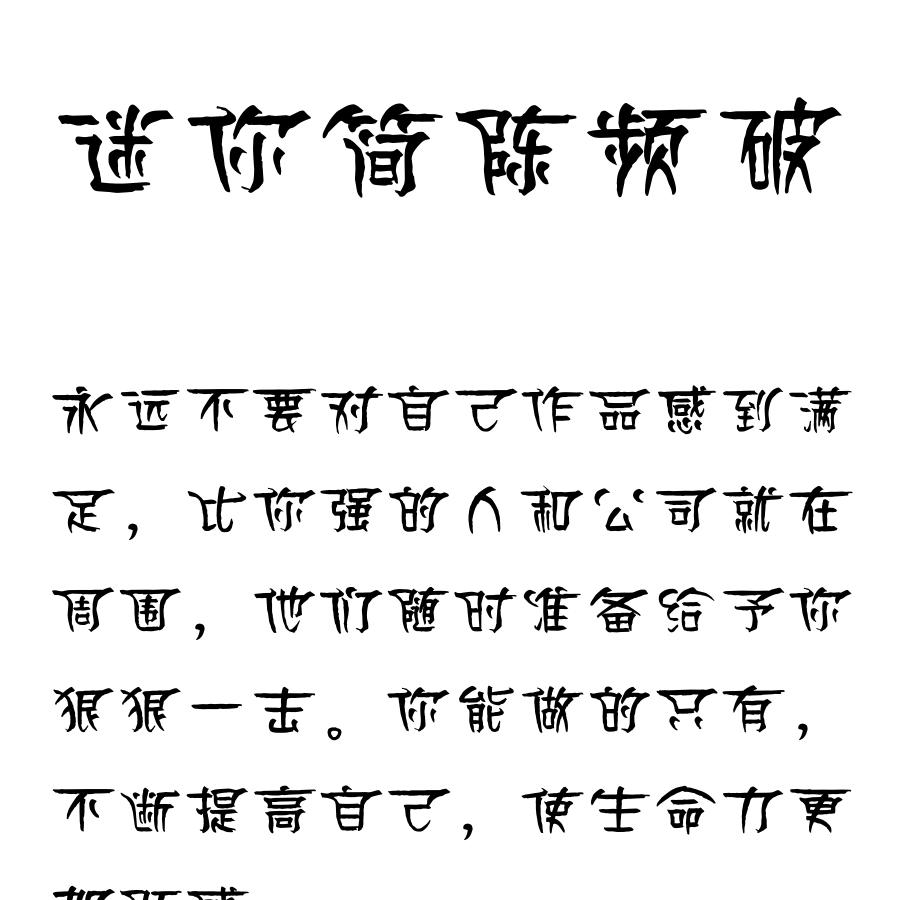 迷你简陈频破
永远不要对自己作品感到满
足，比你强的人和公司就在
周围，他们随时准备给予你
狠狠一击。你能做的只有，
不断提高自己，使生命力更